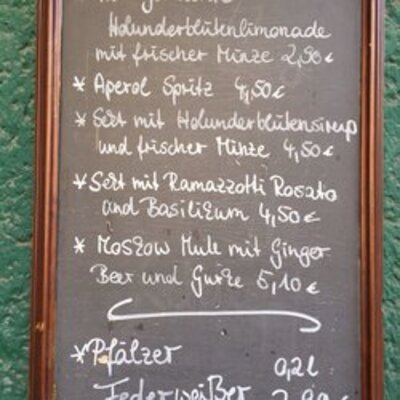 Holunderblütenlimonade
mit frischer Minze 2,90 €
* Aperol Spritz 4,50 €
* Sekt mit Holunderblütensirup
und frischer Minze 4,50 €
* Sekt mit Ramazzotti Rosato
und Basilikum 4,50 €
* Moskow Mule mit Ginger
Beer und Gurke 5,10 €
* Pfälzer 0,2l
Federweißer